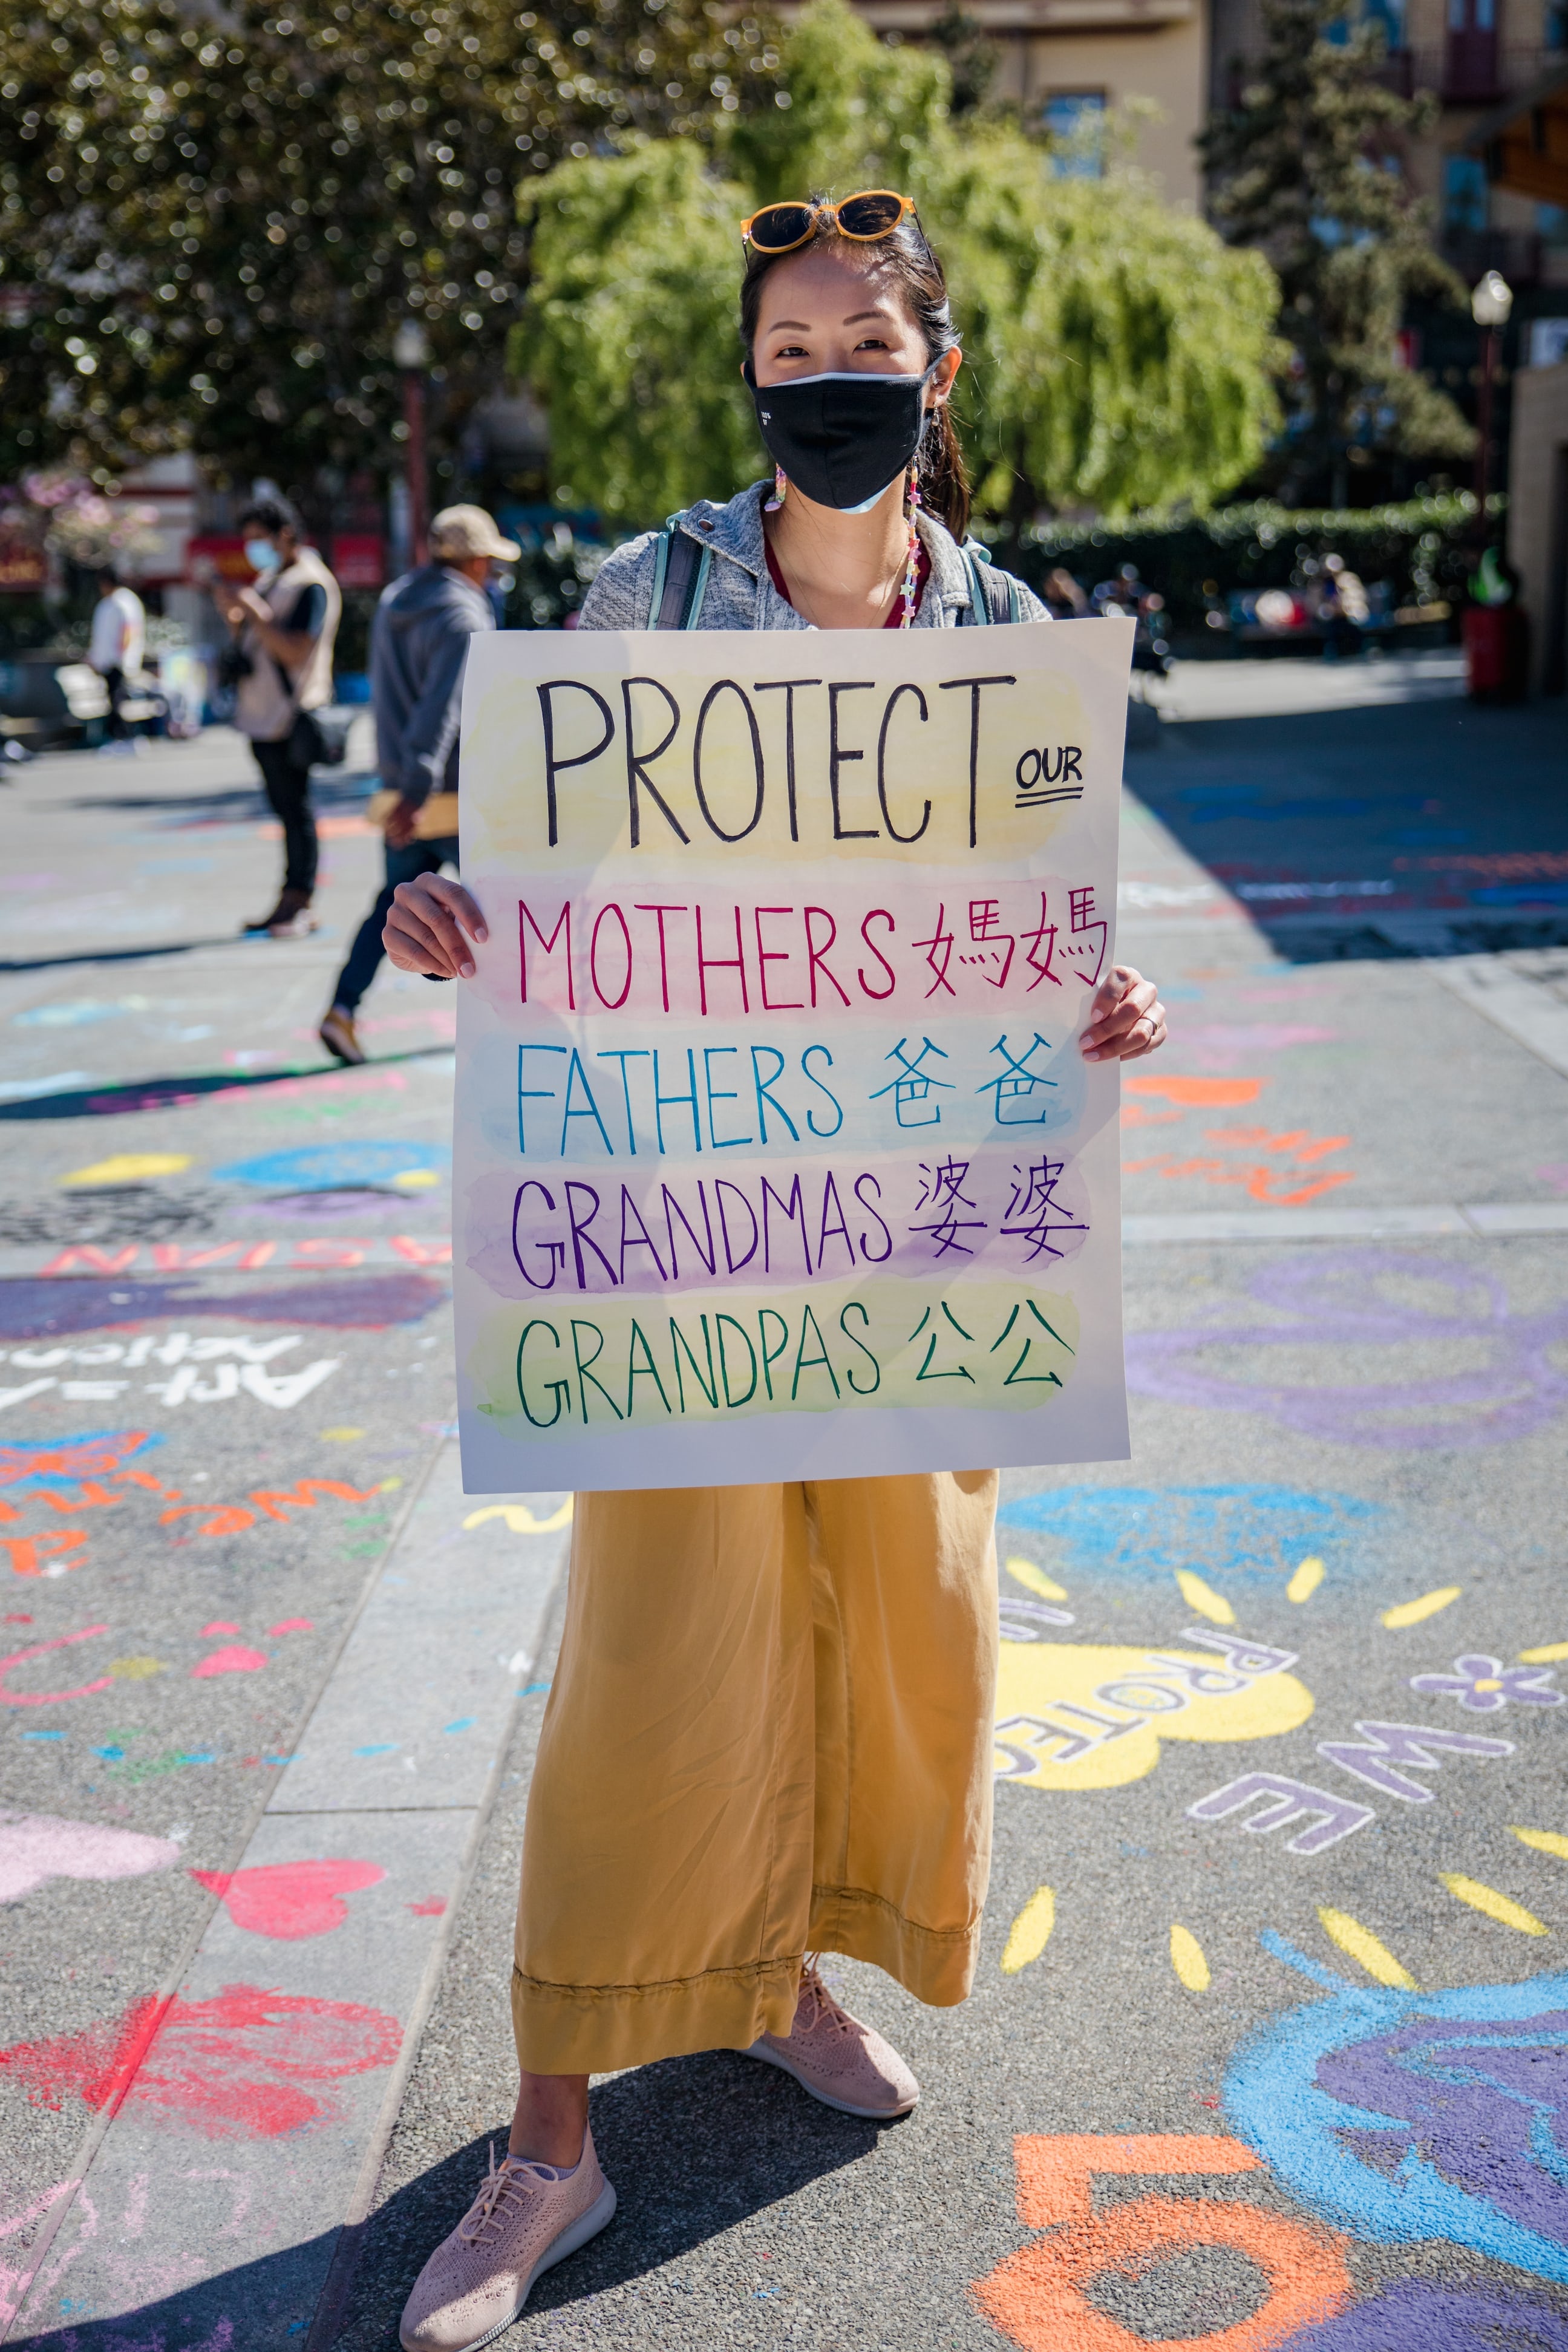 PROTECT OUR
MOTHERS 媽媽
FATHERS 爸爸
GRANDMAS 婆婆
GRANDPAS 公公
ASIAN
Art = A
Action
We
PROTEC
WE
LO